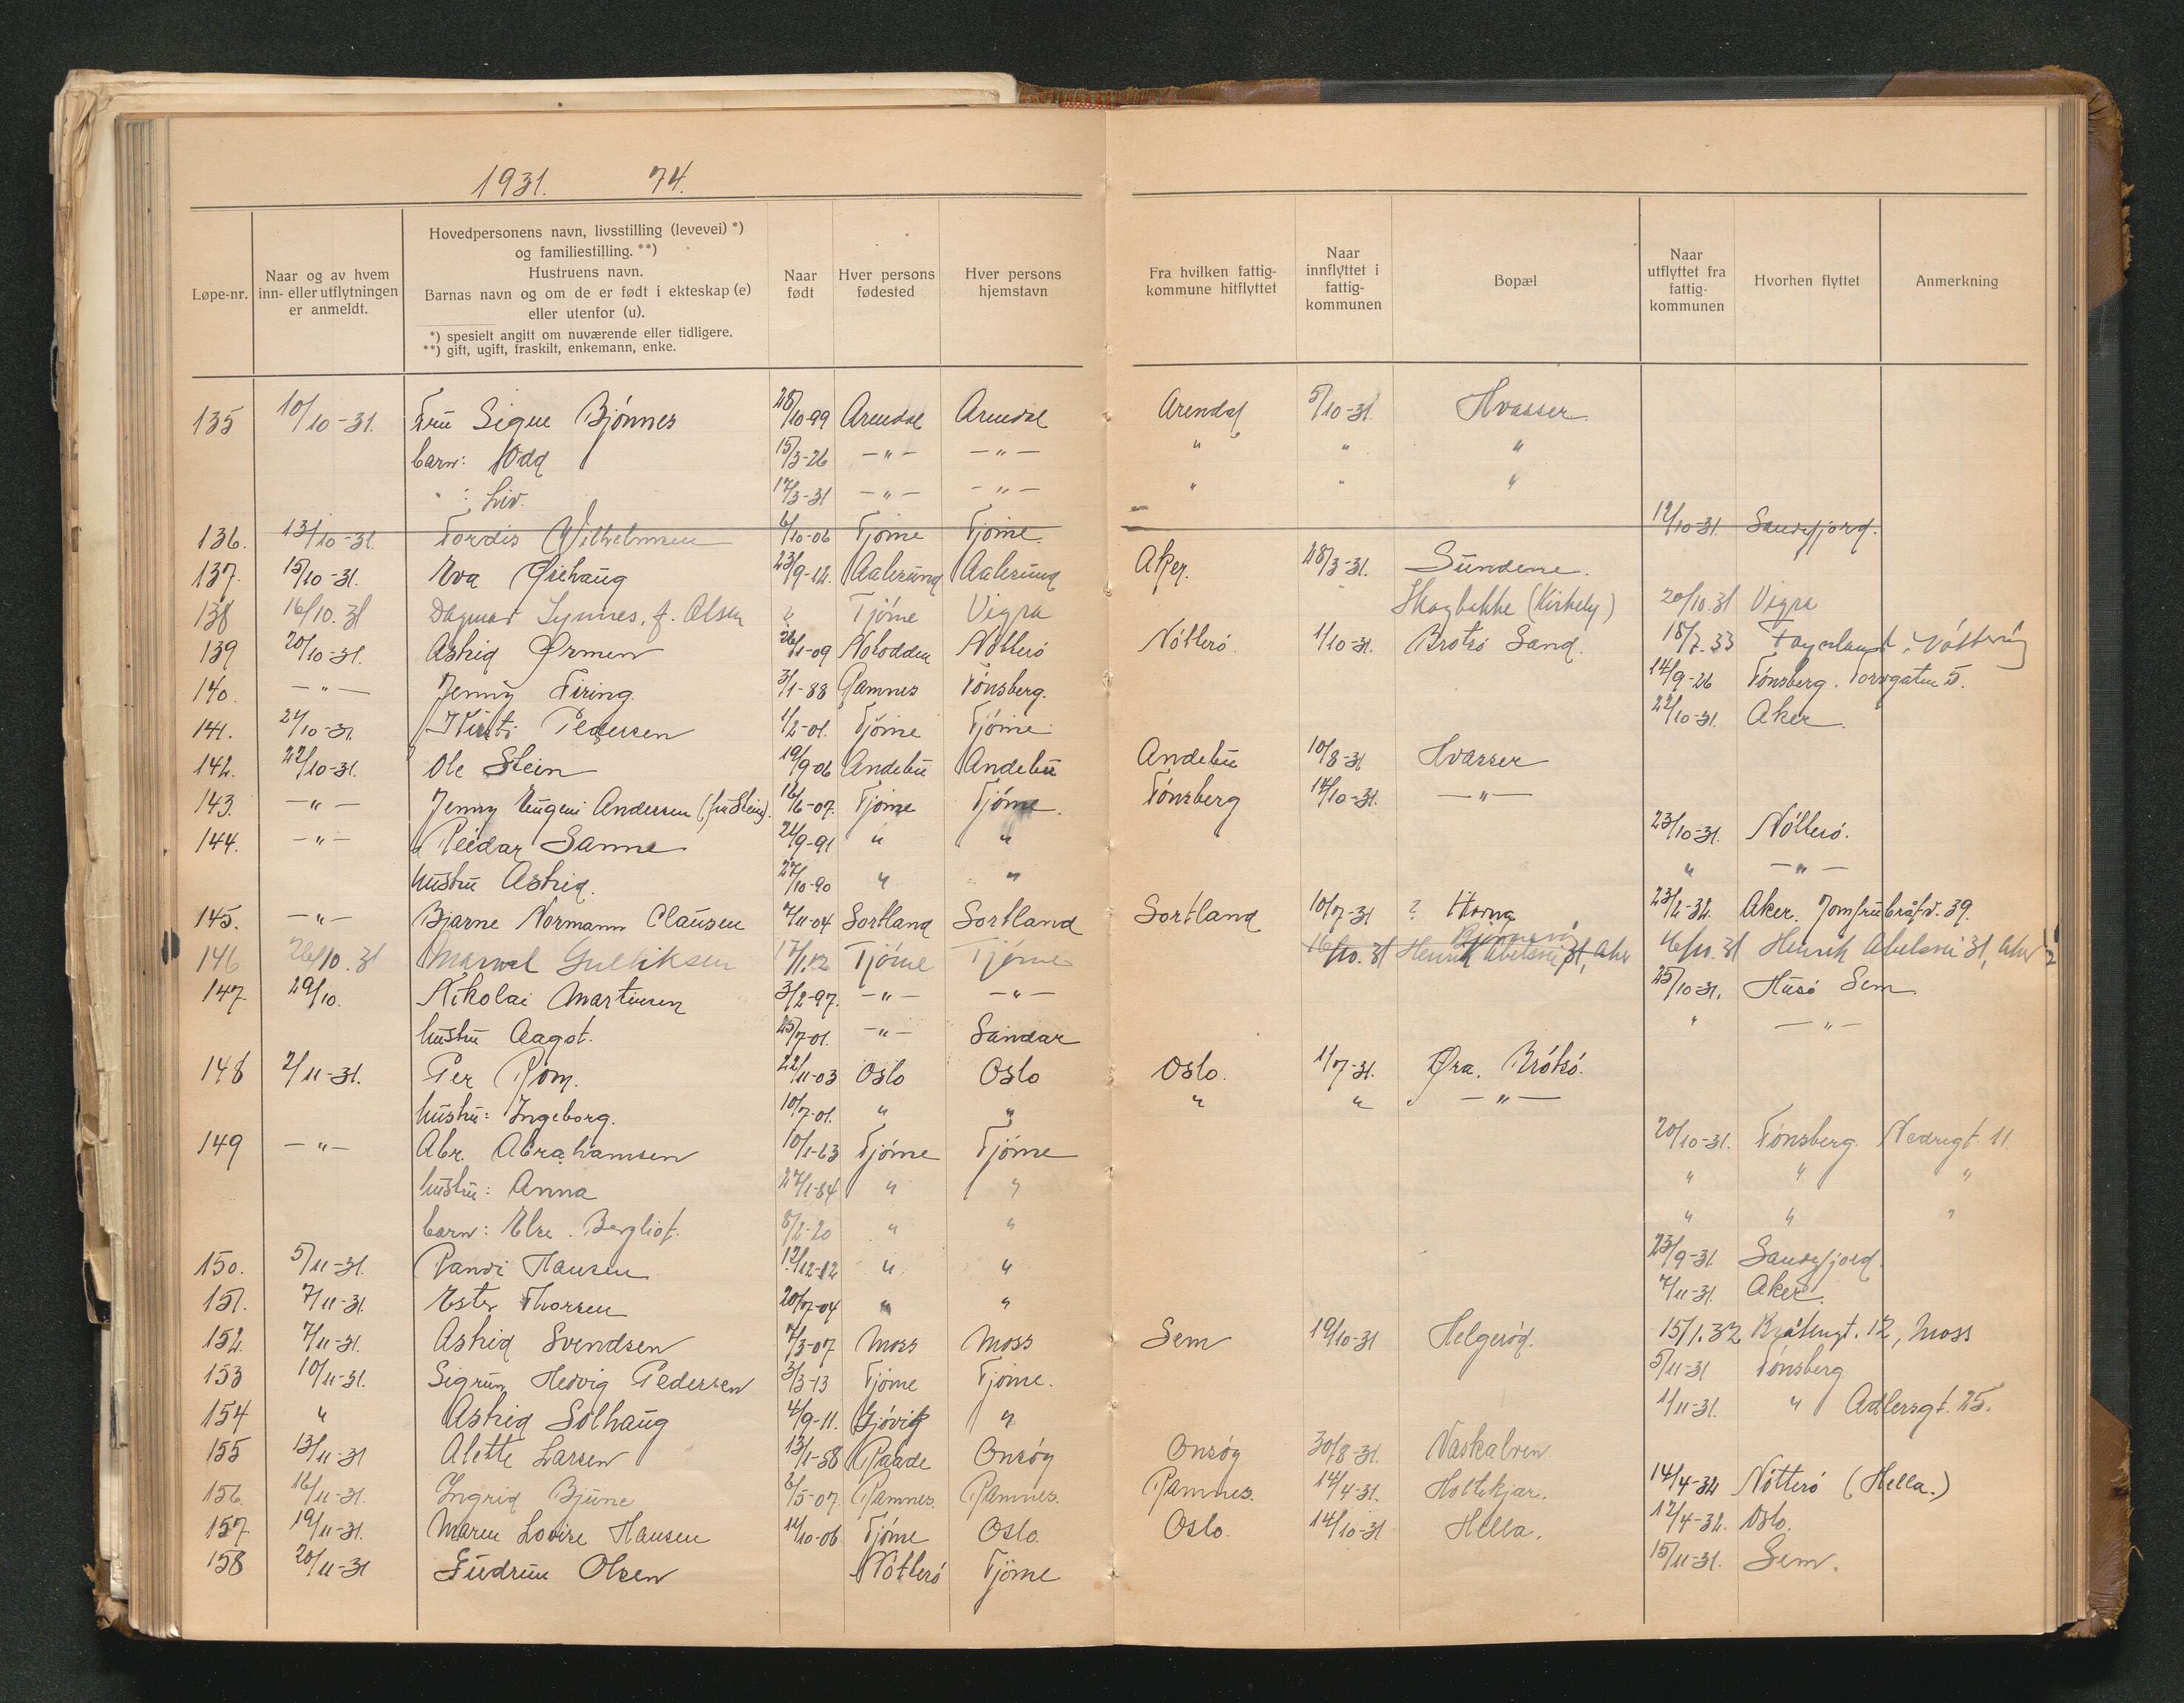 1931. 74.
Løpe-nr. Naar og av hvem inn- eller utflytningen er anmeldt. Hovedpersonens navn, livsstilling (levevei) *) og familiestilling. **) Hustruens navn. Barnas navn og om de er født i ekteskap (e) eller utenfor (u). *) spesielt angitt om nuværende eller tidligere. **) gift, ugift, fraskilt, enkemann, enke. Naar født Hver persons fødested Hver persons hjemstavn Fra hvilken fattigkommune hitflyttet Naar innflyttet i fattigkommunen Bopæl Naar utflyttet fra fattigkommunen Hvorhen flyttet Anmerkning
135 10/10-31. Fru Signe Bjönnes 28/10-99 Arendal Arendal Arendal 5/10-31. Hvasser
barn: Odd 15/3-26 -"- -"- " " "
" : Liv. 17/3-31 -"- -"- " " "
136. 13/10-31. Tordis Wilhelmsen 6/10-06 Tjöme Tjöme. 12/10-31. Sandefjord.
137. 15/10-31. Eva Öiehaug 23/9-12. Aalesund Aalesund Aker. 28/3-31. Sundene.
138 16/10.31 Dagmar Synnes, f. Olsen Tjöme Vigra Skogbakke (Kirkely) 20/10.31 Vigra
139 20/10-31. Astrid Ørmen 26/1-09 Notodden Nötterö Nötterö. 1/10-31. Brötsö Sand. 18/7.33
140. -"- Jenny Firing. 3/1-88 Ramnes Tönsberg. 14/9-26 Tönsberg. Torvgaten 5.
141. 21/10-31 Kirsti Pedersen 1/2-01. Tjöme Tjöme. 22/10-31. Aker.
142. 22/10-31. Ole Stein 19/9-06 Andebu Andebu Andebu 10/8-31 Hvasser
143. -"- Jenny Eugeni Andersen (fru Stein). 16/6-07. Tjöme Tjöme. Tönsberg 17/10-31. -"-
144. -"- Reidar Sanne 21/9-91 " " 23/10-31. Nötterö.
hustru Astrid. 27/10-90 " " " -"-
145. -"- Bjarne Normann Clausen 7/11-04 Sortland Sortland Sortland 10/7-31 ? 23/2-32. Aker. Jomfrubråtv. 39.
146 26/10.31 Gulliksen 17/1.12 Tjöme Tjöme 16/10.31 Henrik Abelsvei 31, Aker 16/10.31 Henrik Abelsvei 31, Aker
147. 29/10. Nikolai Martinsen 3/2-97. -"- -"- 25/10-31. Husö Sem
hustru Aagot. 25/7-01. -"- Sandar " -"-
148 2/11-31. Per Rom. 22/11-03 Oslo Oslo Oslo. 1/7-31. Øra. Brötsö.
hustru: Ingeborg. 10/7-01. " " " " -"-
149 -"- Abr. Abrahamsen 10/1-63 Tjöme Tjöme 20/10-31. Tönsberg. Nedregt. 11.
hustru: Anna 27/1-64 " " " " "
barn: Else Bergliot. 8/2-20 " " " " "
150. 5/11-31. Randi Hansen 12/12-12 " " 23/9-31. Sandefjord.
151. 7/11-31. Ester Thorsen 20/7-04 " " 7/11-31. Aker.
152. 7/11-31. Astrid Svendsen 7/3-07 Moss Moss Sem 19/10-31 Helgeröd. 15/1.32 12, Moss
153 10/11-31. Sigrun Hedvig Pedersen 3/3-13 Tjöme Tjöme. 5/11-31 Tönsberg.
154 " Astrid Solhaug 4/9-11. Gjövik " 1/11-31. " Adlersgt. 25.
155 13/11-31 Alette Larsen 13/1-58 Raade Onsöy Onsöy 30/8-31. Vaskalven
156. 16/11-31. Ingrid Bjune 6/5-07. Ramnes. Ramnes. Ramnes. 14/4-31. Holtekjær. 14/4-32 Nötterö (Hella.)
157. 19/11-31. Maren Lovise Hansen 11/10-06 Tjöme Oslo. Oslo. 14/10-31 Hella. 12/4-32. Oslo.
158 20/11-31 Gudrun Olsen Nötterö Tjöme 15/11-31. Sem.